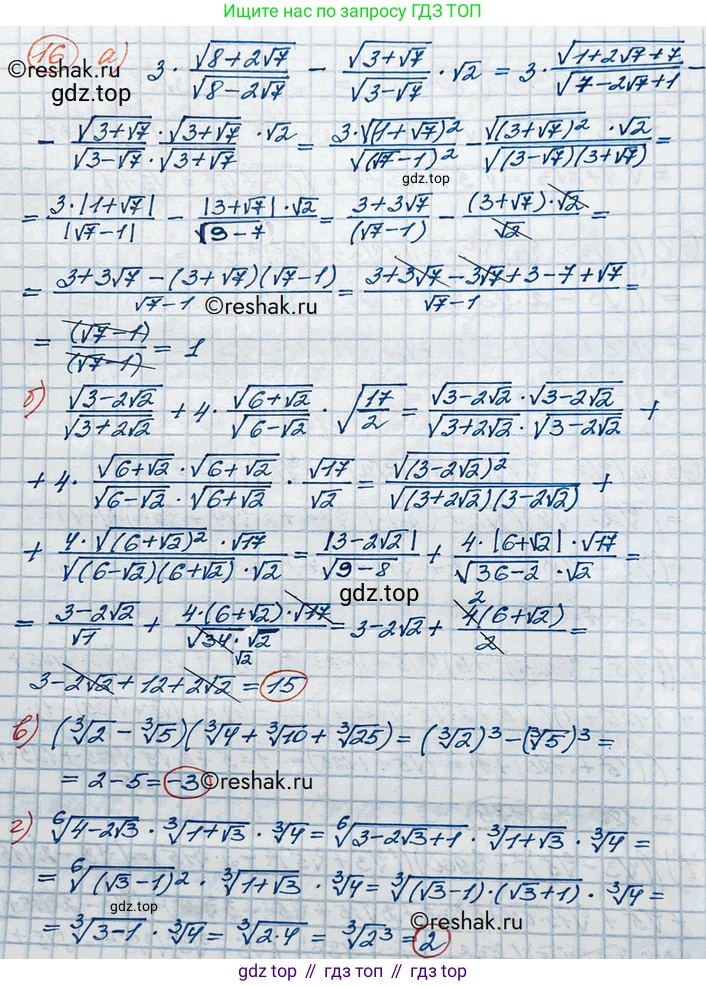 Ищите нас по запросу ГДЗ ТОП
16 а) 3 · √(8+2√7)/√(8−2√7) − √(3+√7)/√(3−√7) · √2 = 3 · √(1+2√7+7)/√(7−2√7+1) −
©reshak.ru
gdz.top
− √(3+√7) · √(3+√7)/(√(3−√7) · √(3+√7)) · √2 = 3·√(1+√7)²/√(√7−1)² − √(3+√7)² · √2/√((3−√7)(3+√7)) =
gdz.top
= 3·|1+√7|/|√7−1| − |3+√7|·√2/√(9−7) = (3+3√7)/(√7−1) − (3+√7)·√2/√2 =
= (3+3√7−(3+√7)(√7−1))/(√7−1) = (3+3√7−3√7+3−7+√7)/(√7−1) =
©reshak.ru
= (√7−1)/(√7−1) = 1
б) √(3−2√2)/√(3+2√2) + 4· √(6+√2)/√(6−√2) · √(17/2) = √(3−2√2) · √(3−2√2)/(√(3+2√2) · √(3−2√2)) +
+ 4· √(6+√2) · √(6+√2)/(√(6−√2) · √(6+√2)) · √17/√2 = √(3−2√2)²/√((3+2√2)(3−2√2)) +
+ 4·√(6+√2)² · √17/(√((6−√2)(6+√2)) · √2) = |3−2√2|/√(9−8) + 4·|6+√2|·√17/(√(36−2) · √2) =
gdz.top
= (3−2√2)/√1 + 4·(6+√2)·√17/(√34 · √2) = 3−2√2 + 4(6+√2)/2 =
√2
2
3−2√2+12+2√2 = 15
в) (∛2 − ∛5)(∛4 + ∛10 + ∛25) = (∛2)³ − (∛5)³ =
= 2−5 = −3
©reshak.ru
г) ⁶√(4−2√3) · ∛(1+√3) · ∛4 = ⁶√(3−2√3+1) · ∛(1+√3) · ∛4 =
= ⁶√(√3−1)² · ∛(1+√3) · ∛4 = ∛((√3−1)·(√3+1)) · ∛4 =
gdz.top
= ∛(3−1) · ∛4 = ∛(2·4) = ∛2³ = 2
©reshak.ru
gdz.top // гдз топ // гдз.топ